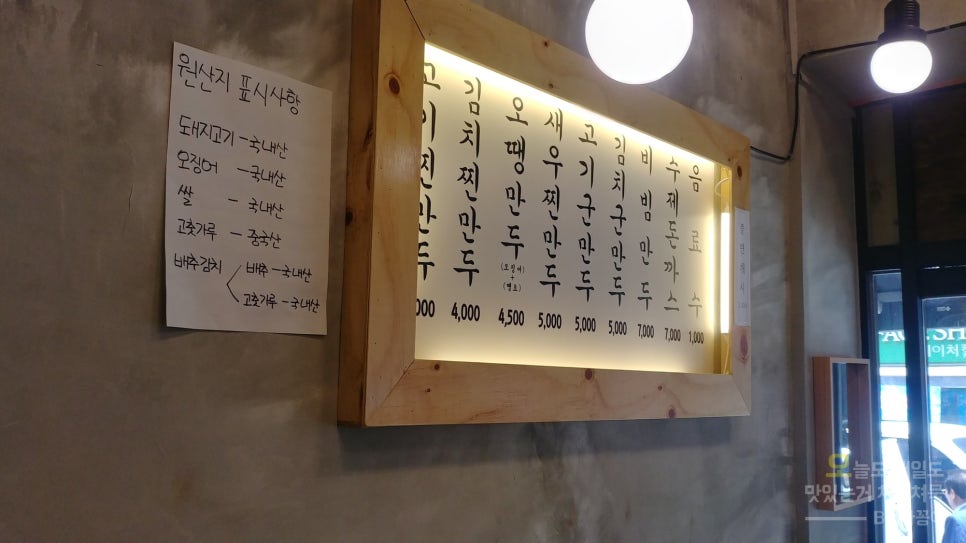 원산지 표시사항
돼지고기 - 국내산
오징어 - 국내산
쌀 - 국내산
고춧가루 - 중국산
배추김치 < 배추 - 국내산
고춧가루 - 국내산
고기찐만두 000
김치찐만두 4,000
오땡만두 (오징어 + 땡초) 4,500
새우찐만두 5,000
고기군만두 5,000
김치군만두 5,000
비빔만두 7,000
수제돈까스 7,000
음료수 1,000
이처
맛있는거